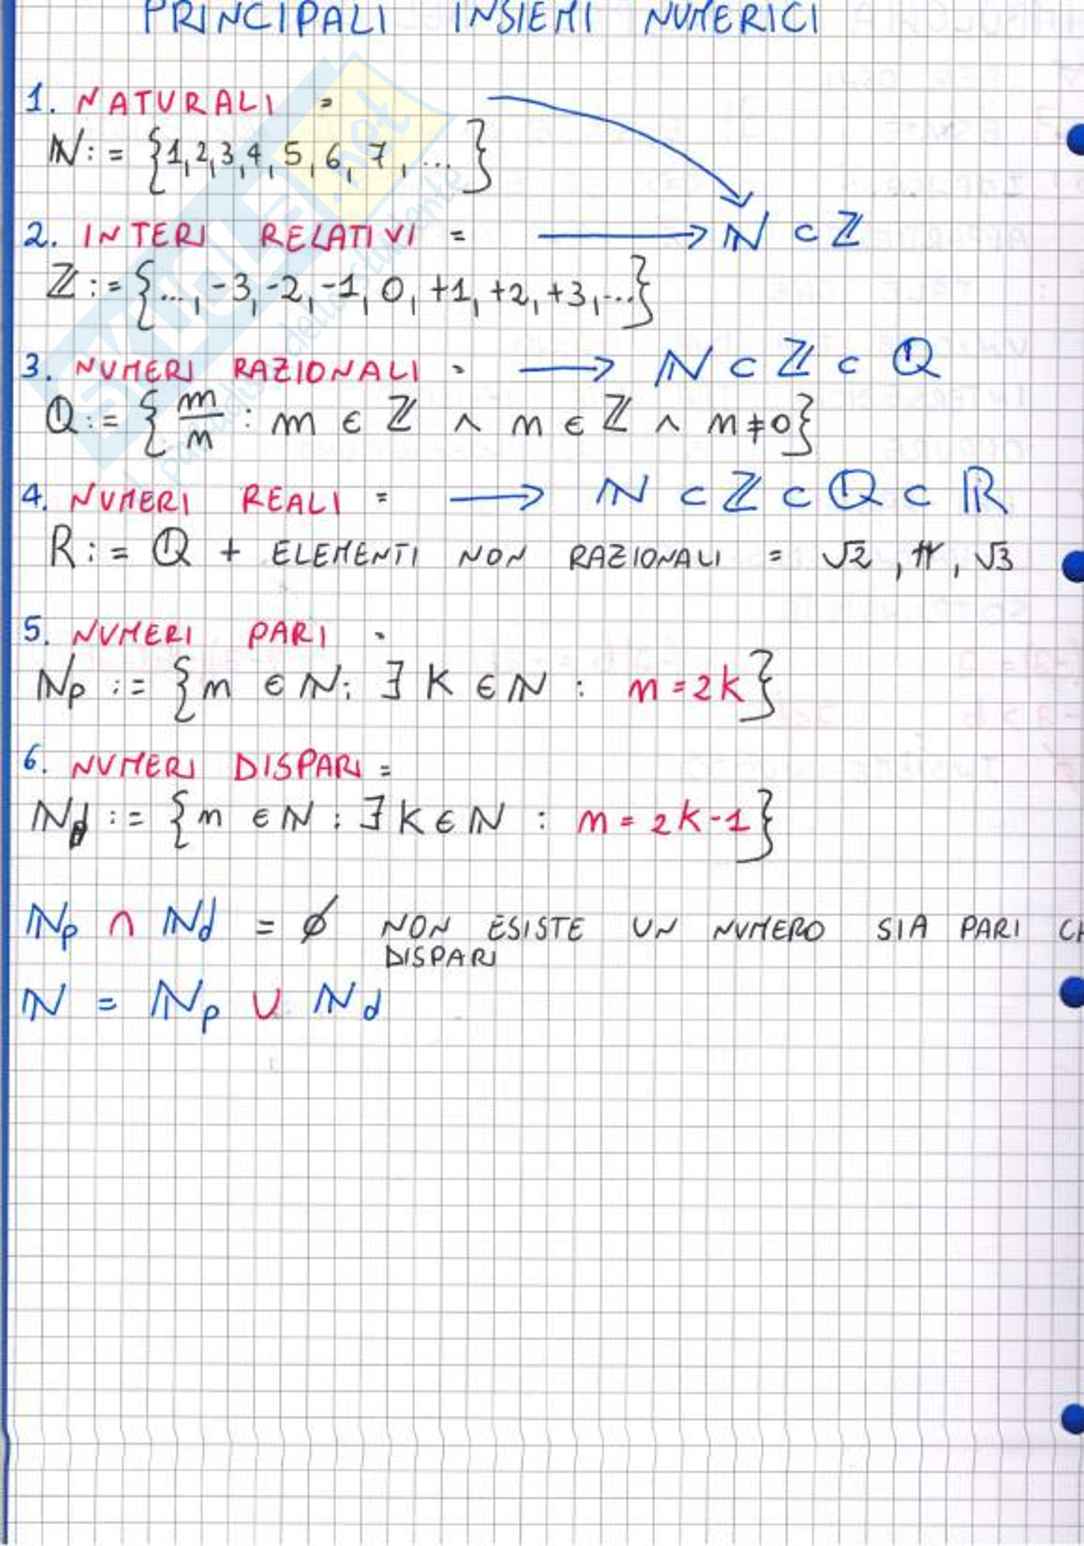 PRINCIPALI INSIEMI NUMERICI
1. NATURALI =
ℕ := {1, 2, 3, 4, 5, 6, 7, ...}
2. INTERI RELATIVI = ⟶ ℕ ⊂ ℤ
ℤ := {..., -3, -2, -1, 0, +1, +2, +3, ...}
3. NUMERI RAZIONALI = ⟶ ℕ ⊂ ℤ ⊂ ℚ
ℚ := {m/n : m ∈ ℤ ∧ n ∈ ℤ ∧ n ≠ 0}
4. NUMERI REALI = ⟶ ℕ ⊂ ℤ ⊂ ℚ ⊂ ℝ
R := ℚ + ELEMENTI NON RAZIONALI = √2, π, √3
5. NUMERI PARI =
ℕp := {n ∈ ℕ : ∃ K ∈ ℕ : n = 2K}
6. NUMERI DISPARI =
ℕd := {n ∈ ℕ : ∃ K ∈ ℕ : n = 2K-1}
ℕp ∩ ℕd = ∅ NON ESISTE UN NUMERO SIA PARI CH
DISPARI
ℕ = ℕp ∪ ℕd